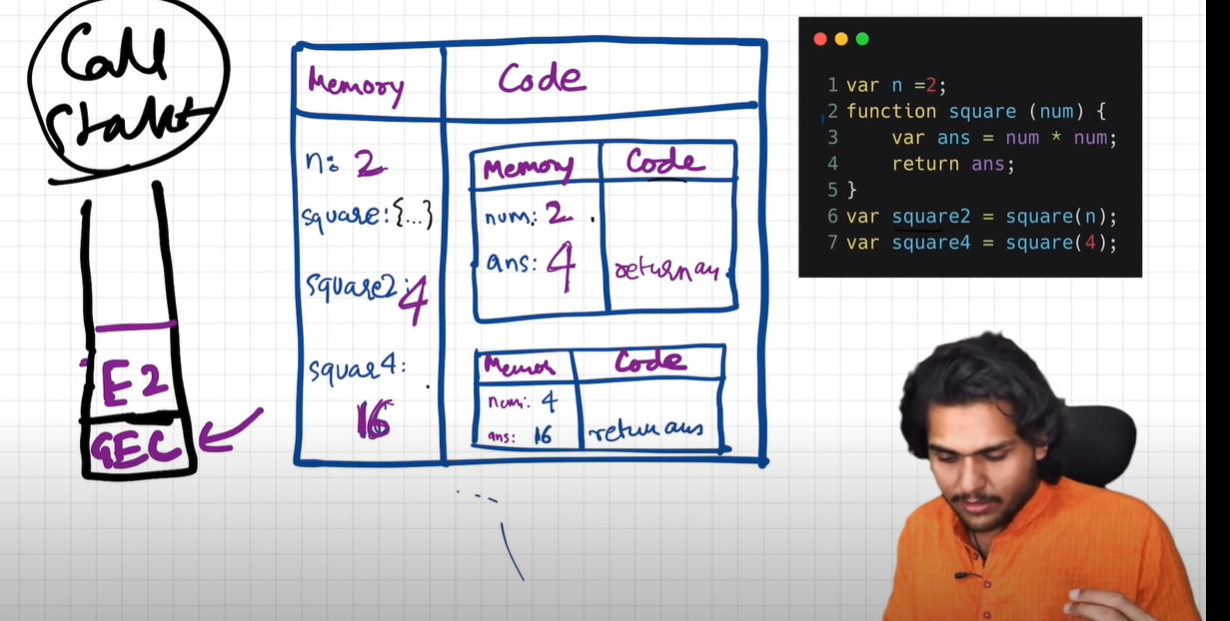 Call
Stakt
E2
GEC
Memory
Code
n: 2
square:{...}
square2: 4
squae4:
16
Memory
Code
num: 2
ans: 4
return an
Memoh
Code
num: 4
ans: 16
return ans
1 var n =2;
2 function square (num) {
3 var ans = num * num;
4 return ans;
5 }
6 var square2 = square(n);
7 var square4 = square(4);